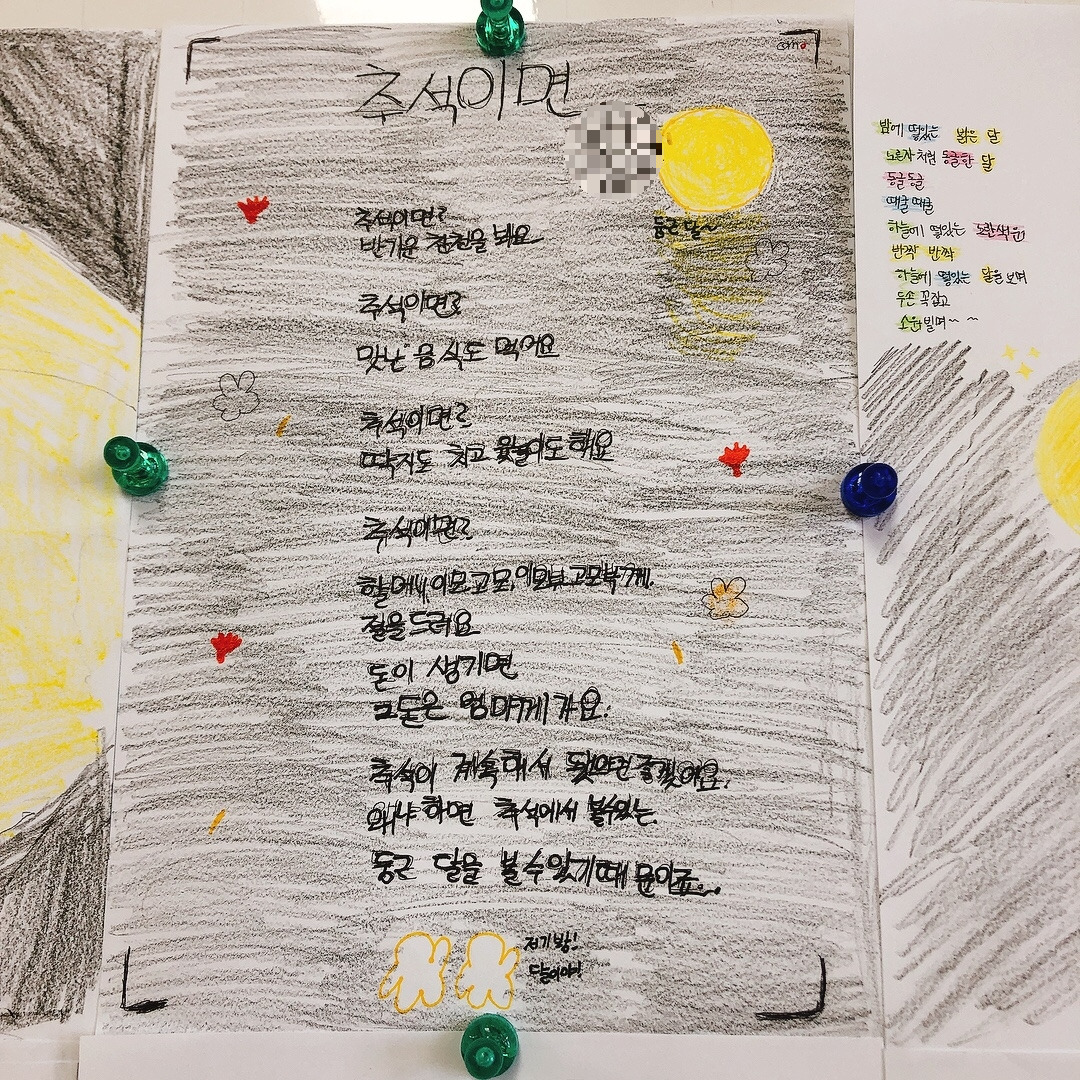 추석이면
추석이면?
반가운 친척을 봬요
둥근 달~
추석이면?
맛난 음식도 먹어요
추석이면?
딱지도 치고 윷놀이도 해요
추석이면?
할머니, 이모 고모, 이모부 고모부께
절을 드려요
돈이 생기면
그돈은 엄마께 가요.
추석이 계속해서 됬으면 좋겠어요.
왜냐 하면 추석에서 볼수있는
둥근 달을 볼 수 있기 때문이죠..
저기 봐!
달이야!
밤에 떠있는 밝은 달
노른자 처럼 동글한 달
동글동글
때굴때굴
하늘에 떠있는 노란색 원
반짝 반짝
하늘에 떠있는 달을 보며
두손 꼭잡고
소원 빌며~ ~